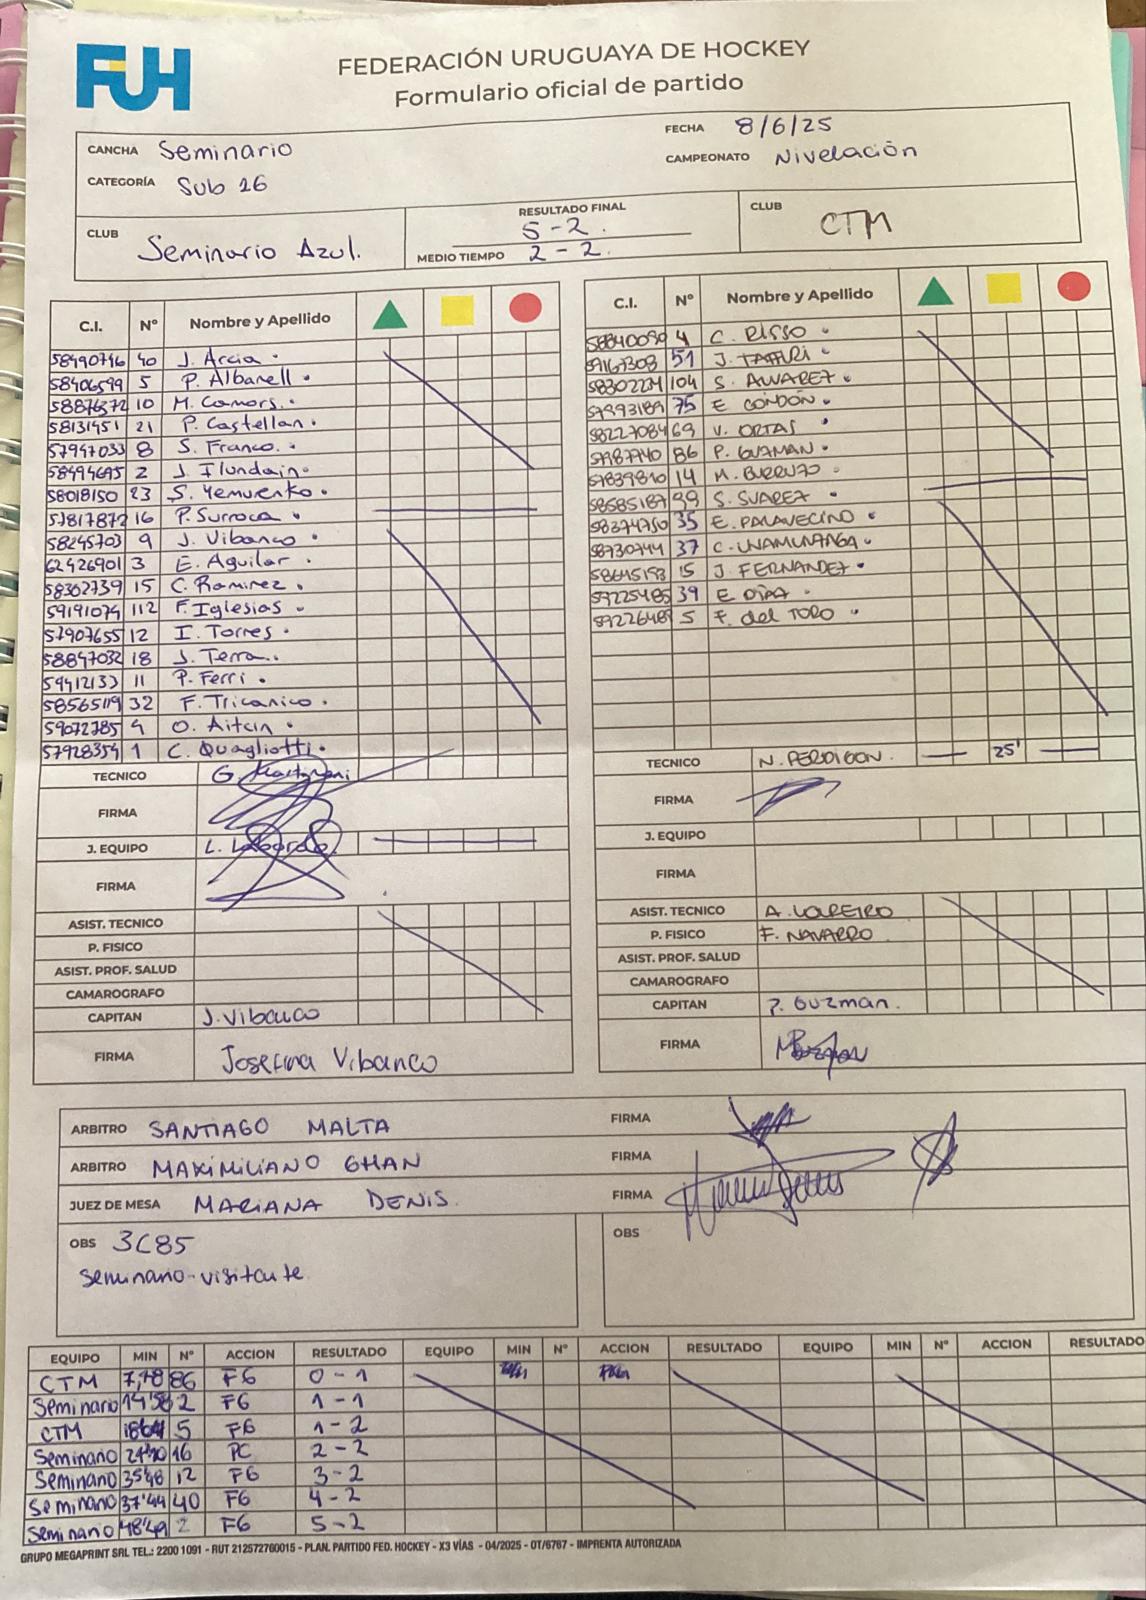 FUH
FEDERACIÓN URUGUAYA DE HOCKEY
Formulario oficial de partido
CANCHA Seminario FECHA 8/6/25
CATEGORÍA Sub 16 CAMPEONATO Nivelación
CLUB Seminario Azul. RESULTADO FINAL 5-2. CLUB CTM
MEDIO TIEMPO 2-2.
C.I. Nº Nombre y Apellido
58490746 40 J. Arcia
58406599 5 P. Albanell
58876372 10 M. Comors.
58131451 21 P. Castellan
57947033 8 S. Franco.
58494695 2 J. Ilundain
58018150 23 S. Yemurenko
57817872 16 P. Surroca
58245703 9 J. Vibanco
62426901 3 E. Aguilar
58302739 15 C. Ramirez
59191074 112 F. Iglesias
57907655 12 I. Torres
58847032 18 J. Terra
59412133 11 P. Ferri
58565119 32 F. Tricanico
59072785 4 O. Aitcin
57928354 1 C. Quagliotti
TECNICO G.
FIRMA
J. EQUIPO L. Laborde
FIRMA
ASIST. TECNICO
P. FISICO
ASIST. PROF. SALUD
CAMAROGRAFO
CAPITAN J. Vibanco
FIRMA Josefina Vibanco
C.I. Nº Nombre y Apellido
4 C. RISSO
59167308 51 J. TAFFURI
104 S. ALVAREZ
57993189 75 E CONDON
58227084 69 V. ORTAS
57987740 86 P. GUZMAN
57839810 14 M. BURRUZO
58585187 99 S. SUAREZ
58374750 35 E. PALAVECINO
58730744 37 C. UNAMUNZAGA
58645193 15 J. FERNANDEZ
59225485 39 E DÍAZ
5 F. del TORO
TECNICO N. PERDIGON. 25'
FIRMA
J. EQUIPO
FIRMA
ASIST. TECNICO A. LOUREIRO
P. FISICO F. NAVARRO
ASIST. PROF. SALUD
CAMAROGRAFO
CAPITAN P. Guzman.
FIRMA
ARBITRO SANTIAGO MALTA FIRMA
ARBITRO MAXIMILIANO GHAN FIRMA
JUEZ DE MESA MARIANA DENIS. FIRMA
OBS 3C85
Seminario-visitante
OBS
EQUIPO MIN Nº ACCION RESULTADO EQUIPO MIN Nº ACCION RESULTADO EQUIPO MIN Nº ACCION RESULTADO
CTM 86 FG 0-1
Seminario 14'58 2 FG 1-1
CTM 5 FG 1-2
Seminario 16 PC 2-2
Seminario 35'48 12 FG 3-2
Seminario 37'44 40 FG 4-2
Seminario 48'49 2 FG 5-2
GRUPO MEGAPRINT SRL TEL.: 2200 1091 - RUT 212572760015 - PLAN. PARTIDO FED. HOCKEY - X3 VÍAS - 04/2025 - OT/6767 - IMPRENTA AUTORIZADA